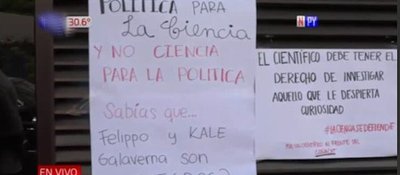 30.6°
N PY
POLITICA PARA
La Ciencia
Y NO CIENCIA
PARA LA POLITICA
Sabías que...
Felippo y KALE
Galaverna son
EL CIENTÍFICO DEBE TENER EL
DERECHO DE INVESTIGAR
AQUELLO QUE LE DESPIERTA
CURIOSIDAD
#LACIENCIASEDEFIENDE
EN VIVO